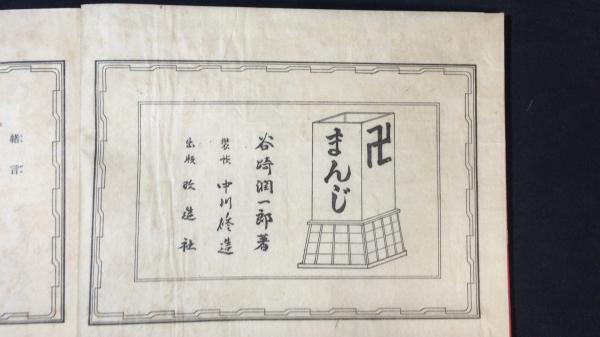 卍
まんじ
谷崎潤一郎著
装幀 中川修造
出版 改造社
緒言